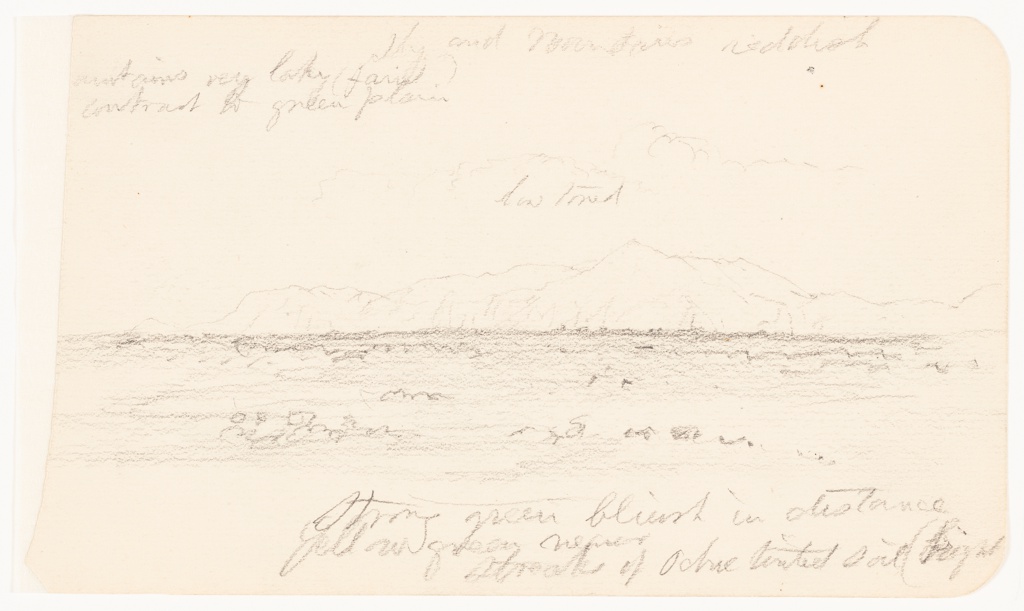 Sky and mountains reddish
untains very lofty (faint)
contrast to green plain
low toned
Strong green bluish in distance
yellow green nearer
streaks of Ochre tinted soil (bright